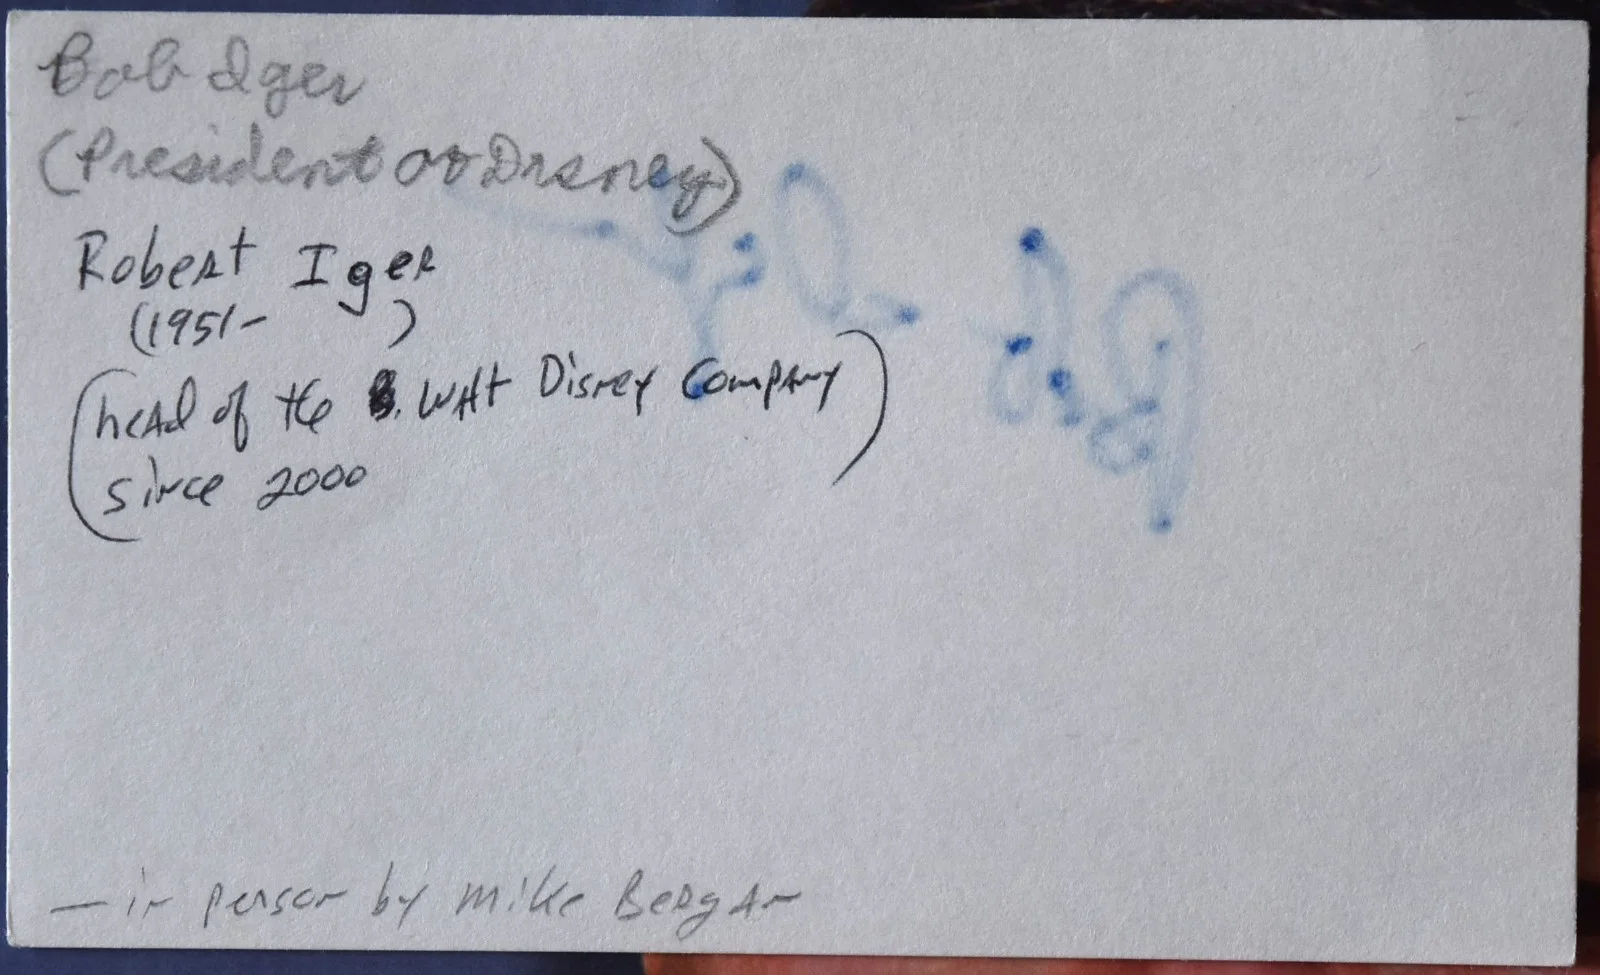 Bob Iger
(President of Disney)
Robert Iger
(1951-    )
(head of the Walt Disney Company)
since 2000
— in person by Mike Bergan